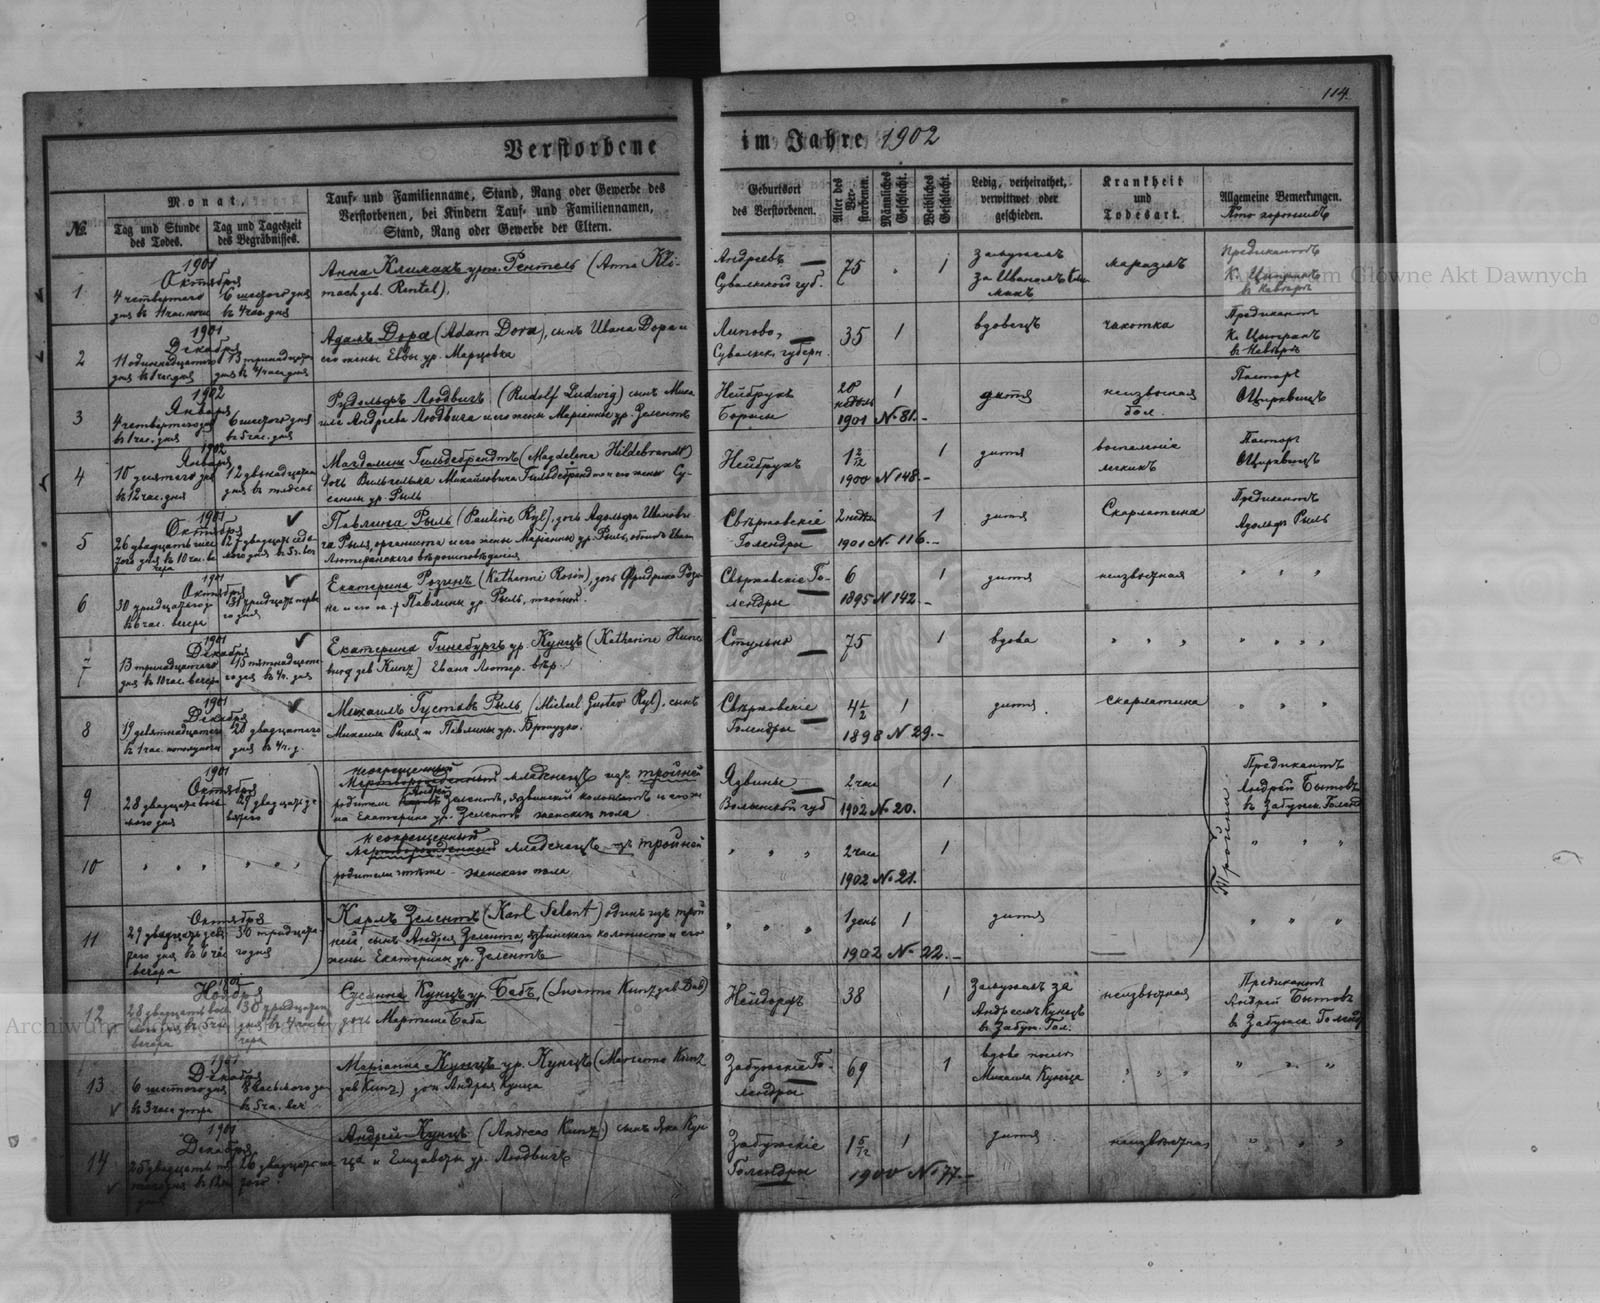 114.
Verstorbene im Jahre 1902
№.
Monat.
Tag und Stunde des Todes.
Tag und Tageszeit des Begräbnisses.
Tauf- und Familienname, Stand, Rang oder Gewerbe des
Verstorbenen, bei Kindern Tauf- und Familiennamen,
Stand, Rang oder Gewerbe der Eltern.
Geburtsort
des Verstorbenen.
Alter des Verstorbenen.
Männliches Geschlecht.
Weibliches Geschlecht.
Ledig, verheirathet,
verwittwet oder
geschieden.
Krankheit
und
Todesart.
Allgemeine Bemerkungen.
Кто хоронилъ
1
1901
Октября
4 четвертого
6 шестого дня
въ 4 час. дня
Анна Климахъ урж. Рентель (Anna Kli-
mach geb. Rentel).
Андреевъ
Сувалкской губ.
75
1
Замужемъ
за Иваномъ
маразмъ
Предикантъ
К. Ципранъ
2
1901
Декабря
11 одинадцатого
13 тринадцатого
Адамъ Дора (Adam Dora), сынъ Ивана Дора и
его жены Евы ур. Марцовка
Липово,
Сувалкск. губерн.
35
1
вдовецъ
чахотка
Предикантъ
К. Ципранъ
3
1902
Января
4 четвертого дня
въ 1 час. дня
6 шестого дня
въ 5 час. дня
Рудольфъ Людвигъ (Rudolf Ludwig) сынъ Миха
ила Андреева Людвига и его жены Маріанны ур. Зелентъ
Нейбрухъ
20 недѣль
1
1901 № 81.-
дитя
неизвѣстная
бол.
Пасторъ
4
1902
Января
10 десятого дня
въ 12 час. дня
12 двѣнадцатого
Магдалина Гильдебрандтъ (Magdelena Hildebrandt)
дочь Вильгельма Михайловича Гильдебрандта и его жены Су-
санны ур. Рыль
Нейбрухъ
1 2/12
1
1900 № 148.-
дитя
воспаленіе
легкихъ
Пасторъ
5
1901
Октября
26 двадцать шес
27 двадцать седь
мого дня
Павлина Рыль (Pauline Ryl), дочь Адольфа Иванови
ча Рыля, органиста и его жены Маріанны ур. Рыль, обоихъ Еван.
Лютеранского вѣроисповѣданія
Свѣржовскіе
Голендры
2 недѣли
1
1901 № 116.-
дитя
Скарлатина
Предикантъ
Адольфъ Рыль
6
1901
Октября
30 тридцатого
въ 6 час. вечера
31 тридцать перва
го дня
Екатерина Розинъ (Katharine Rosin), дочь Фридриха Рози
на и его ж. † Павлины ур. Рыль,
Свѣржовскіе Го-
лендры
6
1
1895 № 142.-
дитя
неизвѣстная
7
1901
Декабря
13 тринадцатого
дня въ 10 час. вечера
15 пятнадцата
го дня въ 4 ч. дня
Екатерина Гинебургъ ур. Кунцъ (Katharine Hune
burg geb Kunz) Еванг Лютер. вѣр.
Стульно
75
1
вдова
8
1901
Декабря
19 девятнадцатого
въ 1 час. пополуночи
20 двадцатого
дня въ 4 ч. д.
Михаилъ Густавъ Рыль (Michael Gustav Ryl), сынъ
Михаила Рыля и Павлины ур. Броцуцко.
Свѣржовскіе
Голендры
4 1/2
1
1898 № 29.-
дитя
скарлатина
9
1901
Октября
28 двадцать вось
мого дня
29 двадцать де
вятого
некрещенный
Мертворожденный младенецъ изъ тройней
родители Андрей Зелентъ, язвинскій колонистъ и его же
на Екатерина ур. Зелентъ женского пола
Язвины
Волынской губ
2 часа
1
1902 № 20.
Предикантъ
Андрей Бытовъ
въ Забужск. Голенд
Тройни
10
некрещенный
Мертворожденный младенецъ изъ тройней
родители тѣже - женского пола
2 часа
1
1902 № 21.
11
Октября
29 двадцать девя
того дня въ 6 час
вечера
30 тридцата
го дня
Карлъ Зелентъ (Karl Selent) одинъ изъ трой
ней, сынъ Андрея Зелента, язвинского колониста и его
жены Екатерины ур. Зелентъ
1 день
1
1902 № 22.-
дитя
12
1901
Ноября
28 двадцать вось
вечера
30 тридцатаго
Сусанна Кунцъ ур. Бабъ, (Susanna Kunz geb Bab)
дочь Мартина Баба
Нейдорфъ
38
1
Замужемъ за
Андреемъ Кунцъ
въ Забуж. Гол.
неизвѣстная
Предикантъ
Андрей Бытовъ
въ Забужск. Голенд
13
1901
Декабря
6 шестого дня
въ 3 часа утра
8 восьмого дня
въ 5 ча. веч
Маріанна Кунцъ ур. Кунцъ (Marianna Kunz
geb Kunz) дочь Андрея Кунца
Забужскіе Го-
лендры
69
1
вдова послѣ
Михаила Кунца
14
1901
Декабря
25 двадцать пя
26 двадцать ше
того
Андрей Кунцъ (Andreas Kunz) сынъ Яна Кун
ца и Елизаветы ур. Людвигъ
Забужскіе
Голендры
1 5/12
1
1900 № 77.-
дитя
неизвѣстная
Archiwum Główne Akt Dawnych